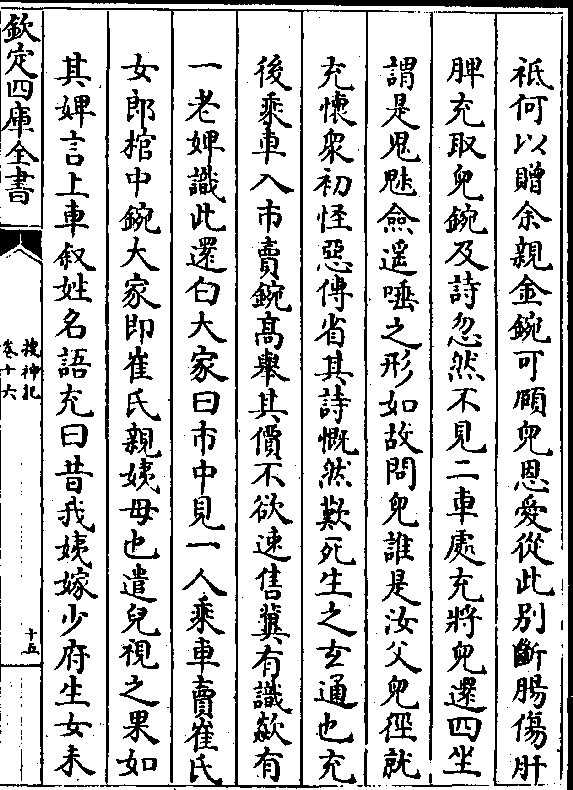 祗何以贈余親金鋺可頤兒恩愛從此别斷腸傷肝
脾充取兒鋺及詩忽然不見二車處充將兒還四坐
謂是鬼魅僉遥唾之形如故問兒誰是汝父兒徑就
充懷衆初怪惡傳省其詩慨然歎死生之玄通也充
後乘車入市賣鋺高舉其價不欲速售冀有識歘有
一老婢識此還白大家曰市中見一人乘車賣崔氏
女郎棺中鋺大家即崔氏親姨母也遣兒視之果如
其婢言上車叙姓名語充曰昔我姨嫁少府生女未
欽定四庫全書
搜神記
卷十六
十五